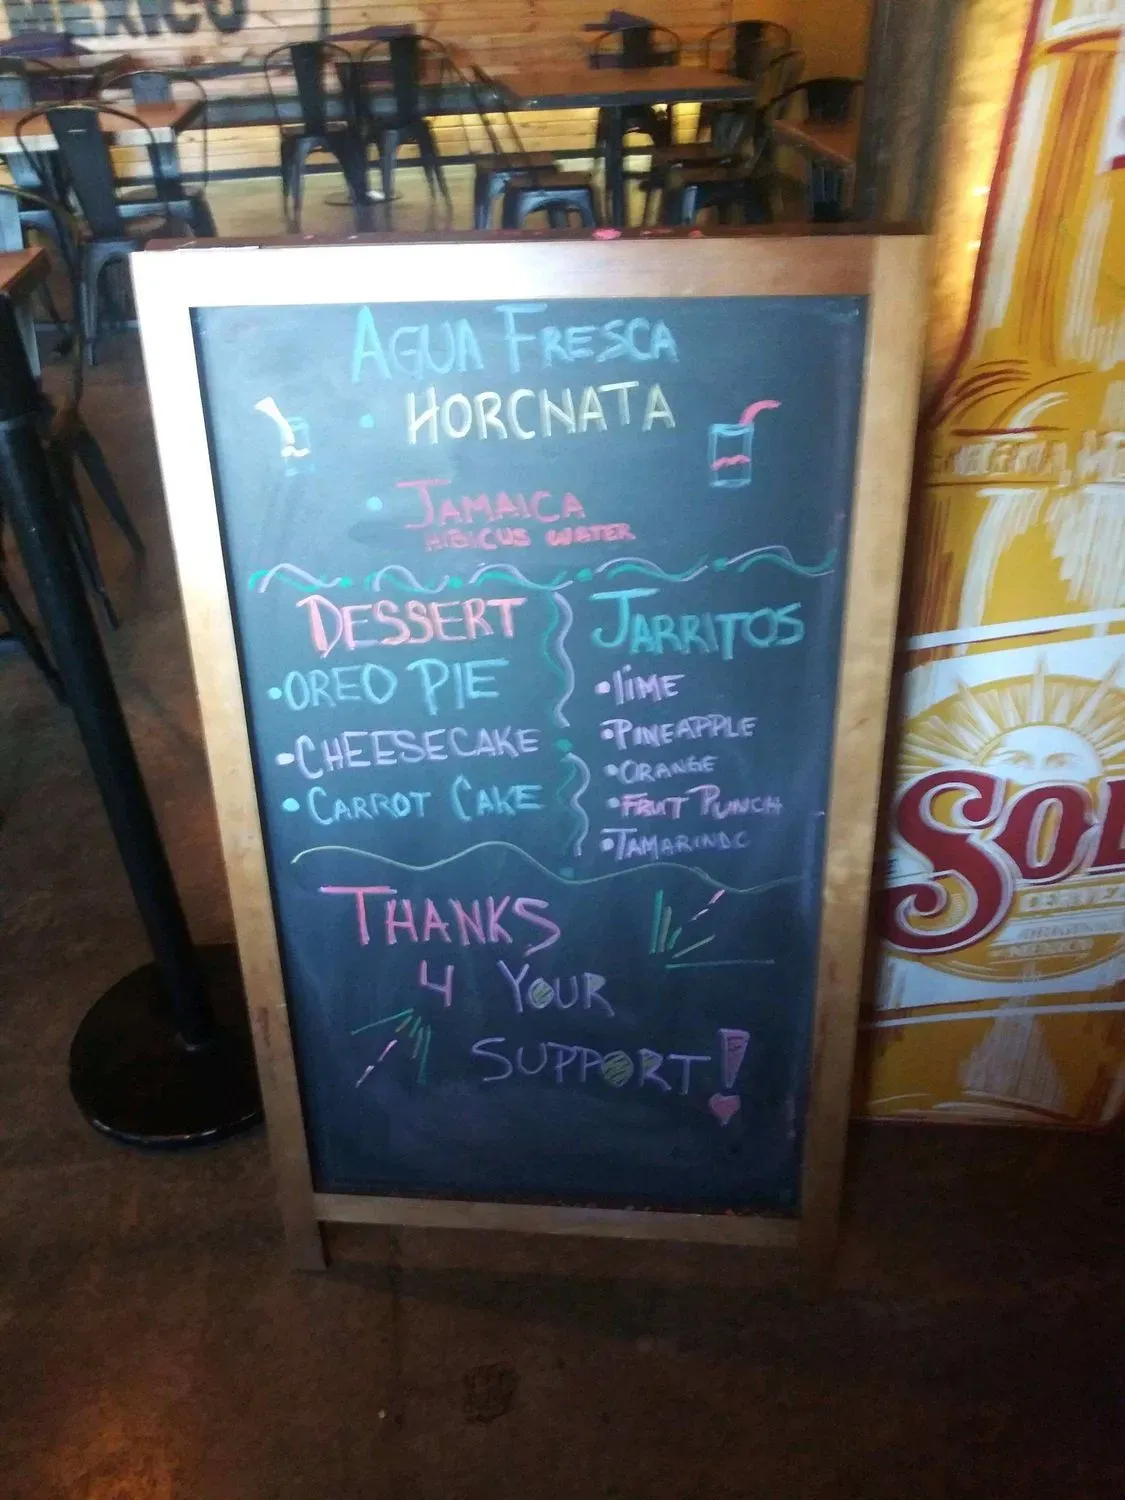 MEXICO
AGUA FRESCA
• HORCNATA
• JAMAICA
HIBICUS WATER
DESSERT
• OREO PIE
• CHEESECAKE
• CARROT CAKE
JARRITOS
• lIME
• PINEAPPLE
• ORANGE
• FRUIT PUNCH
• TAMARINDO
THANKS
4 YOUR
SUPPORT!
SOL